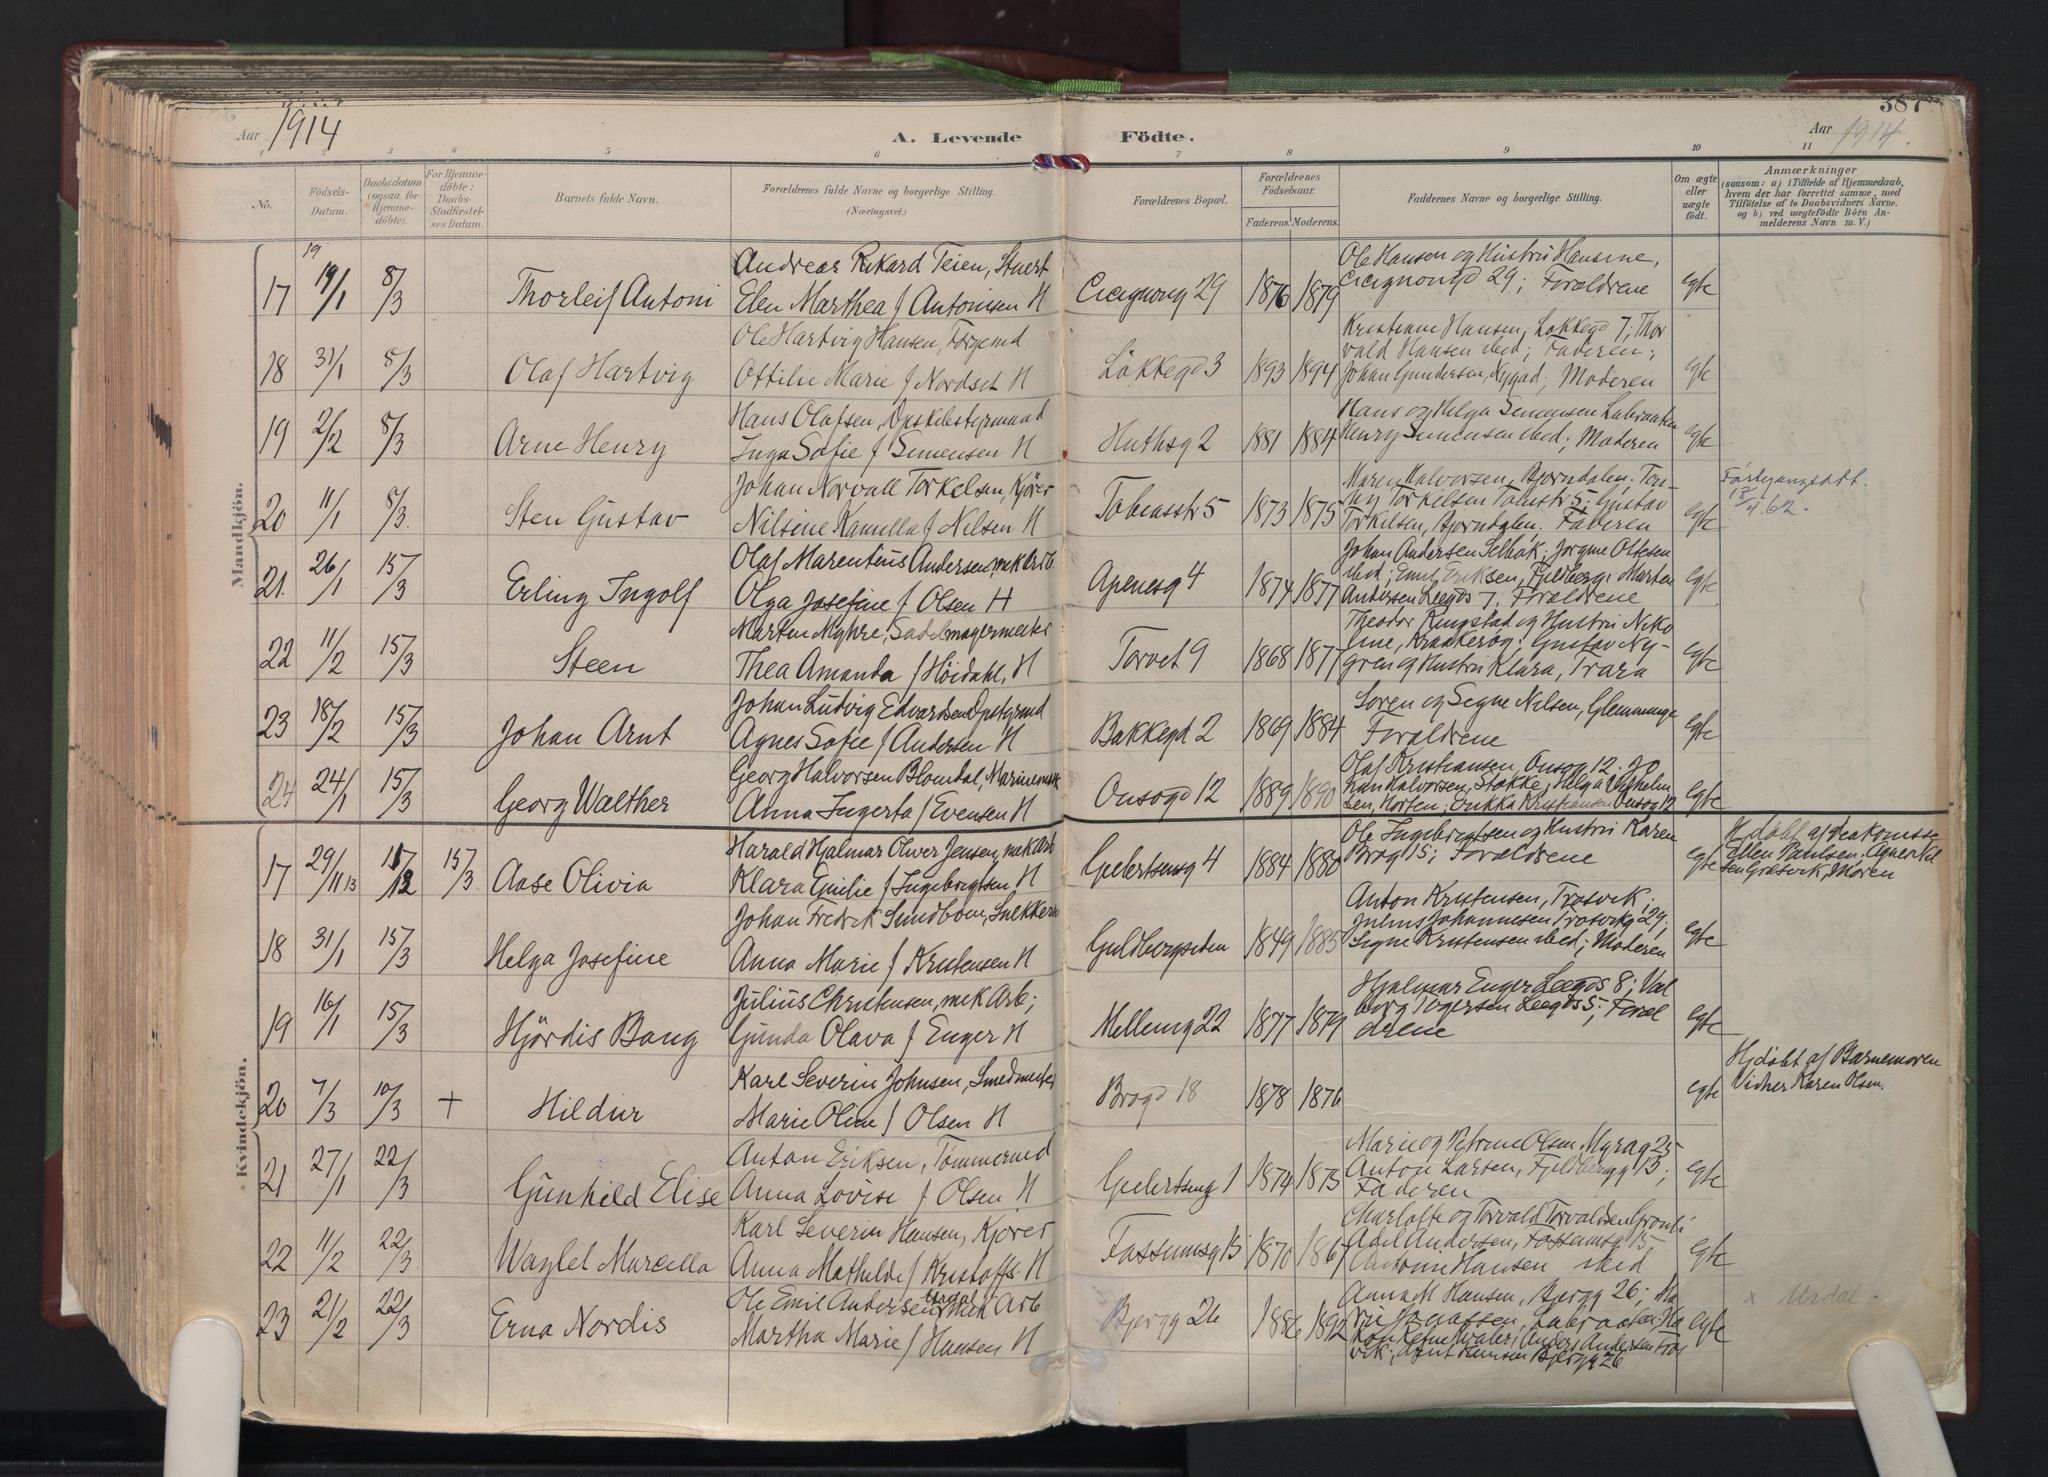 387
Aar 1914
A. Levende Födte.
Aar 1914.
1 2 3 4 5 6 7 8 9 10 11
No.
Födsels-Datum.
Daabsdatum (ogsaa for Hjemme-döbte).
For Hjemme-döbte: Daabs-Stadfæstel-ses Datum.
Barnets fulde Navn.
Forældrenes fulde Navne og borgerlige Stilling. (Næringsvei.)
Forældrenes Bopæl.
Forældrenes Födselsaar.
Faderens. Moderens.
Faddernes Navne og borgerlige Stilling.
Om ægte eller uægte födt.
Anmærkninger
(saasom: a) i Tilfælde af Hjemmedaab, hvem der har forrettet samme, med Tilföielse af to Daabsvidners Navne, og b) ved uægtefödte Börn An-melderens Navn m. V.)
Mandkjön.
19
17 19/1 8/3 Thorleif Antoni
Andreas Rikard Teien, Stuert
Elen Marthea f Antonisen H
Cicignong 29 1876 1879
Ole Hansen og Hustru Hansine,
Cicignongd 29; Forældrene
egte
18 31/1 8/3 Olaf Hartvig
Ole Hartvig Hansen, Fargemd
Ottilie Marie f Nordset H
Løkkegd 3 1893 1894
Kristiane Hansen, Løkkegd 7; Thor
vald Hansen ibid; Faderen;
Johan Gundersen, Nygad; Moderen
egte
19 2/2 8/3 Arne Henry
Hans Olafsen, Opskebstyrmand
Inga Sofie f Simensen H
Huthsg 2 1881 1884
Hans og Helga Simensen Labraaten
Henry Simensen ibid; Moderen
egte
20 11/1 8/3. Sten Gustav
Johan Norvall Torkelsen, Kjörer
Nilsine Kamilla f Nilsen H
Tobiasstr 5 1873 1875
Maren Halvorsen, Bjorndalen; Ton-
ny Torkelsen Tobiastr 5; Gustav
Torkelsen, Bjorndalen. Faderen
egte
Førstegangsatt.
13/4.62.
21. 26/1 15/3 Erling Ingolf
Olaf Marentius Andersen, mek Arb
Olga Josefine f Olsen H
Apenesg 4 1874 1877
Johan Andersen Selbak; Jorgine Oltesen
ibid; Emil Eriksen, Fjeldberg; Marten
Andersen Leegds 7. Forældrene
egte
22 11/2 15/3 Steen
Marten Myhre, Sadelmagermester
Thea Amanda f Höidahl, H
Torvet 9 1868 1877
Theodor Ringstad og Hustru Niko
line, Kraakerøg; Gustav Ny-
gren og Hustru Klara, Trara
egte
23 18/2 15/3 Johan Arnt
Johan Ludvig Edvardsen Opstyrmd
Agnes Sofie f Andersen H
Bakkegd 2 1869 1884
Soren og Signe Nilsen, Glemminge
Forældrene
egte
24 24/1 15/3 Georg Walther
Georg Halvorsen Bloendal, Marinemsk
Anna Ingerta f Evensen H
Onsogd 12 1889 1890
Olaf Kristiansen, Onsog 12. Jo
han Halvorsen, Stokke; Helga Vilhelm
sen, Horten; Erikka Kristiansen Onsog 12
egte
Kvindekjön.
17 29/11 13 11/12 15/3. Aase Olivia
Harald Hjalmar Oliver Jensen, mek Arb
Klara Emilie f Ingebrigtsen H
Geelertsensg 4 1884 1880
Ole Ingebrigtsen og Hustru Karen
Brog 15; Forældrene
egte
Hjdöbt af Diakonisse
Ellen Paulsen. Agnes Nil
sen Græsvik, Moren
18 31/1 15/3 Helga Josefine
Johan Fredrik Sundbom, Snekker
Anna Marie f Kristensen H
Guldbergsiden 1849 1885
Anton Kristensen, Trosvik;
Julius Johannesen Trosvikg 29;
Signe Kristensen ibid; Moderen
egte
19 16/1 15/3 Hjördis Bang
Julius Christensen, mek Arb;
Gunda Olava f Enger H
Mellemg 22 1877 1879
Hjalmar Enger Leegds 8; Val
borg Togersen Leegds 5; Foræl
drene
egte
20 7/3 10/3 + Hildur
Karl Severin Johnsen, Smedmester
Marie Oline f Olsen H
Brogd 18 1878 1876
egte
Hjdöbt af Barnemoren
Vidner Karen Olsen.
21 27/1 22/3 Gunhild Elise
Anton Eriksen, Tömmermd
Anna Lovise f Olsen H
Geelertseng 1 1874 1873
Marie og Petrine Olsen, Myrag 25
Anton Larsen, Fjeldbergg 13;
Faderen
egte
22 11/2 22/3 Waglel Marcella
Karl Severin Hansen, Kjörer
Anna Mathilde f Kristoffs. H
Fossumsg 15 1870 1867
Charlotte og Torvald Torvaldsen Gronli
Axel Andersen, Fossumsg 15
Hansen ibid
egte
23 21/2 22/3 Erna Nordis
Ole Emil Andersen Urdal mek Arb
Martha Marie f Hansen H
Bjergg 26 1886 1892
Anna M Hansen, Bjergg 26; Ma
Labraaten; Ha
Anders Andersen Tros
vik; Hansen Bjergg 26
egte
x Urdal.